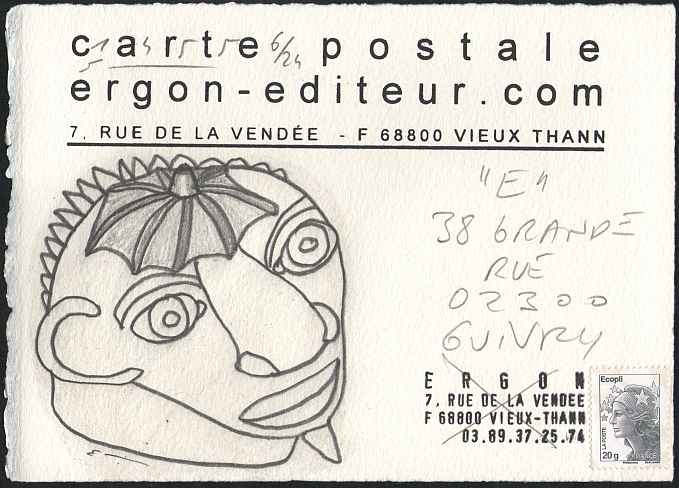 carte postale
6/24
ergon-editeur.com
7, RUE DE LA VENDÉE - F 68800 VIEUX THANN
"E"
38 GRANDE
RUE
02300
GUIVRY
ERGON
7, RUE DE LA VENDEE
F 68800 VIEUX-THANN
03.89.37.25.74
Ecopli
LA POSTE
20g
FRANCE